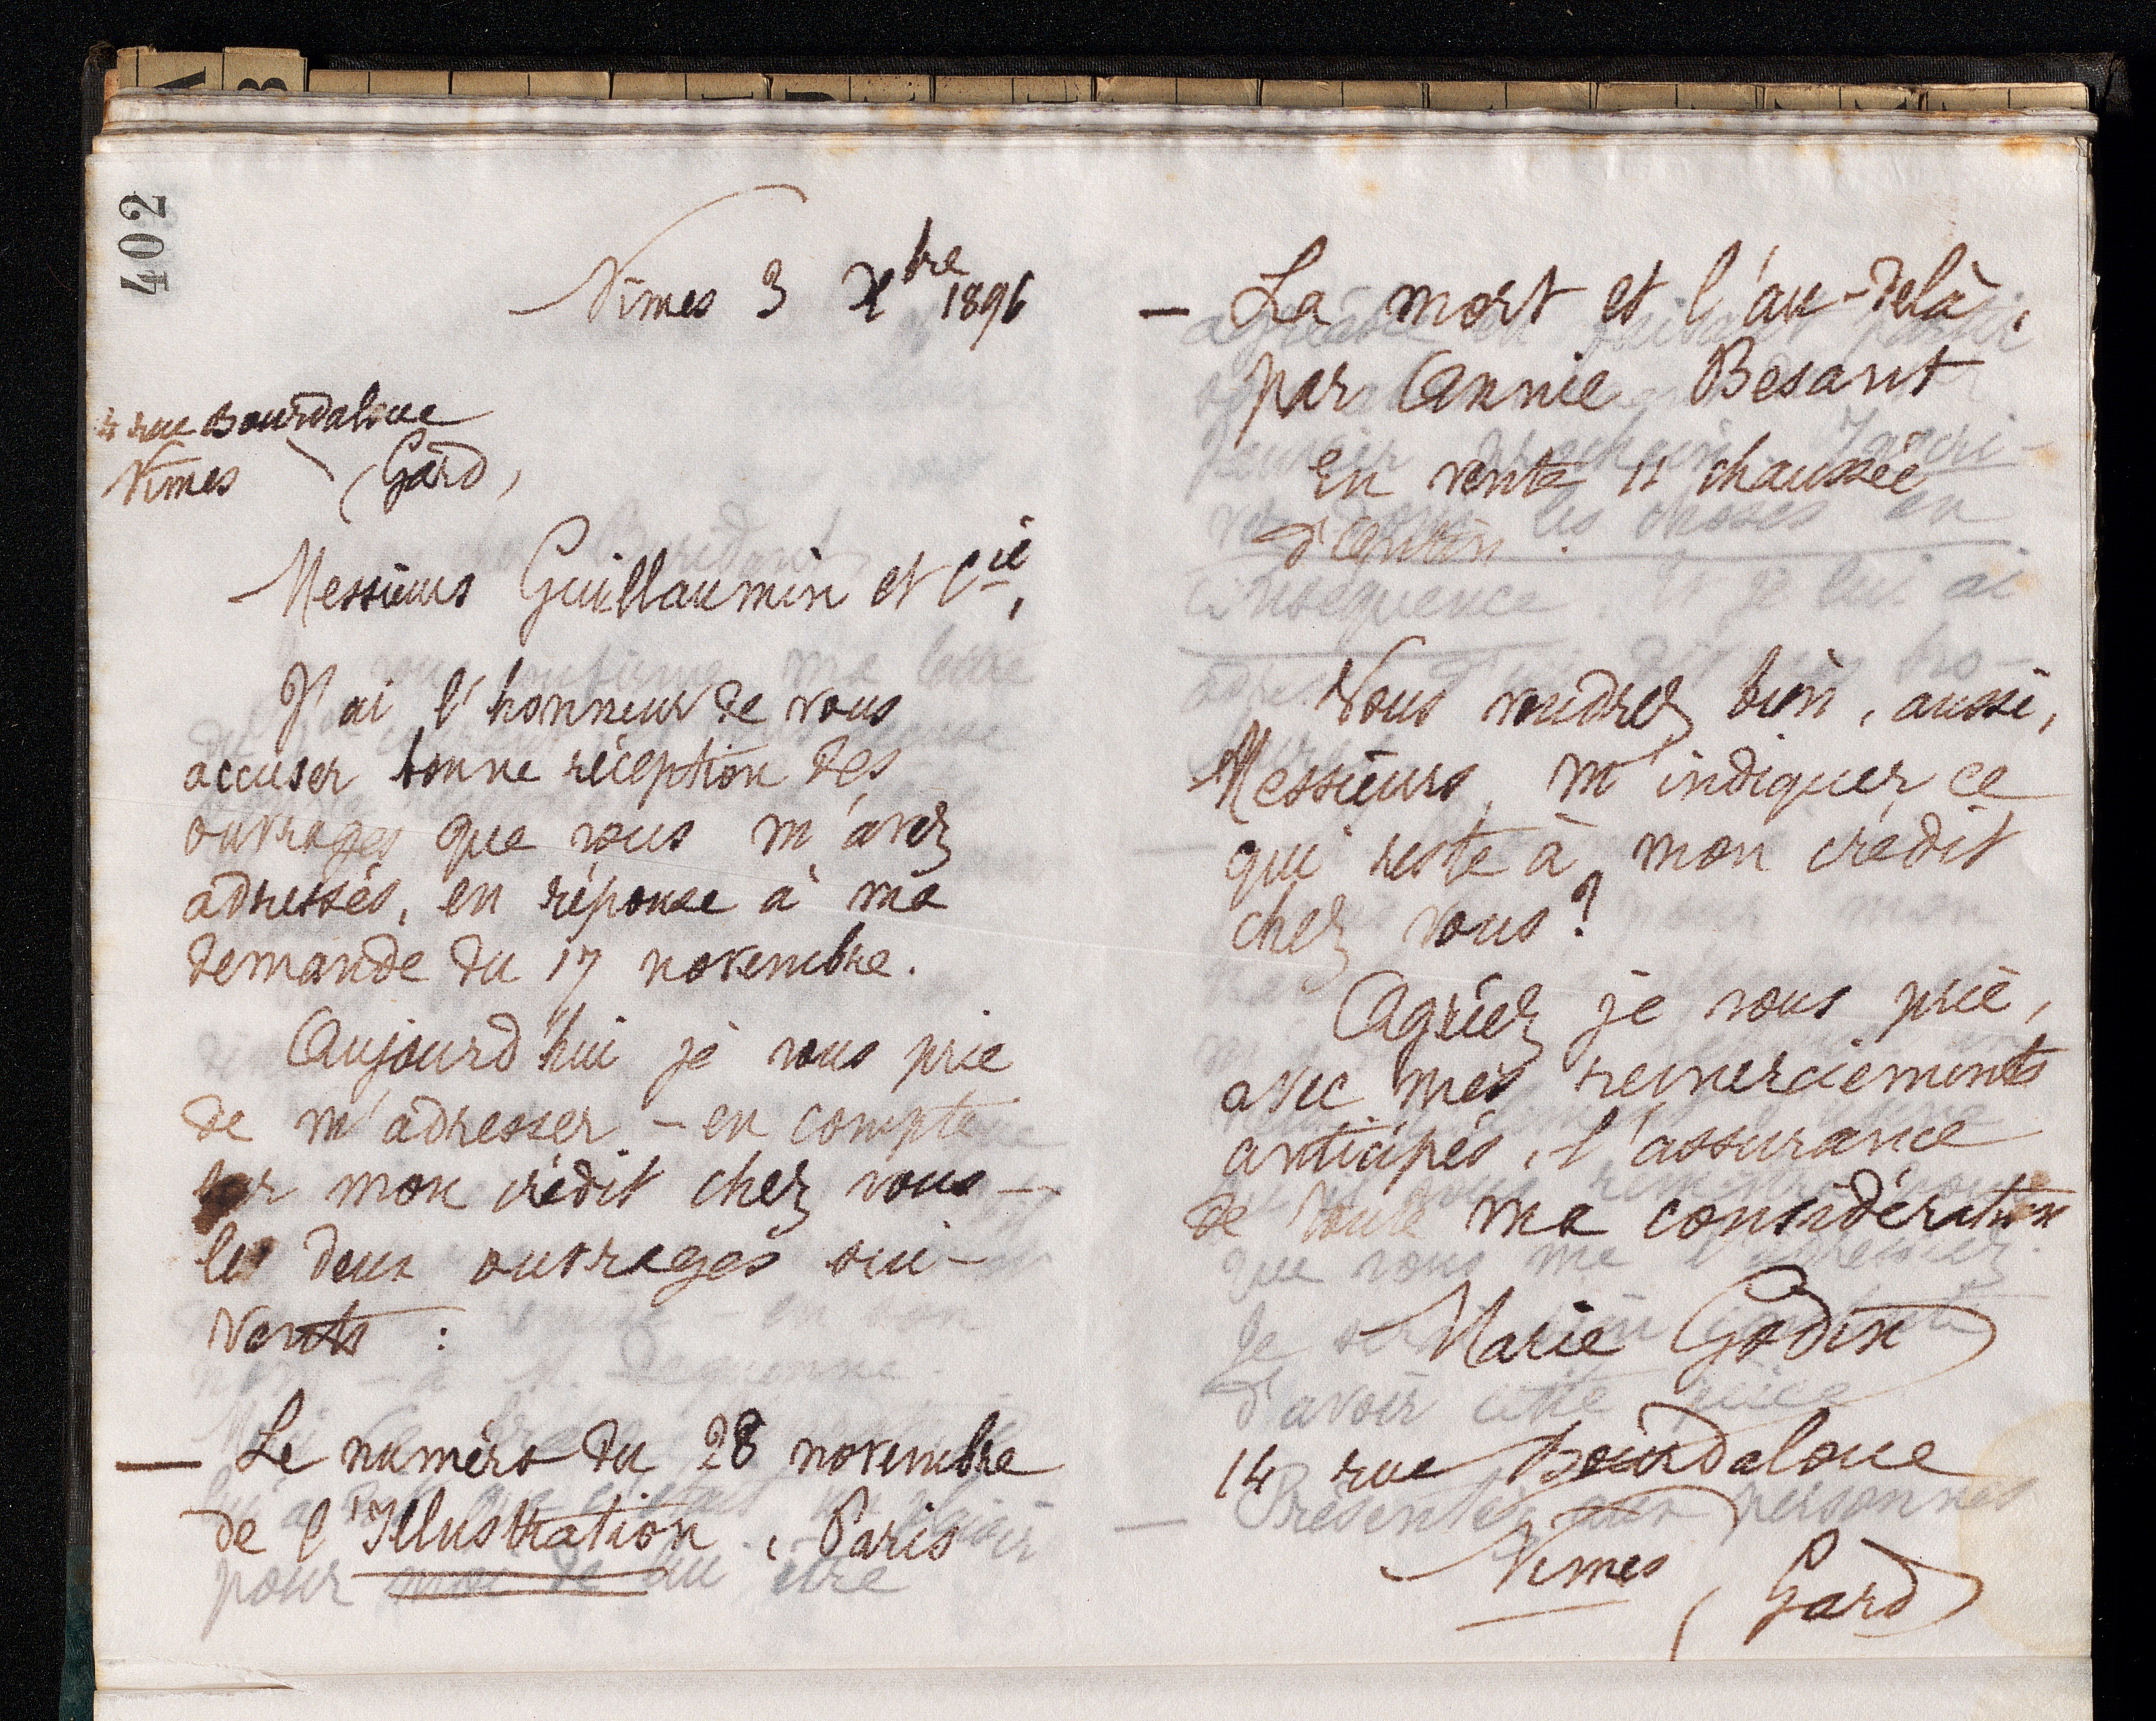 402
Nîmes 3 Xbre 1896
4 rue Bourdaloue
Nîmes (Gard)
Messieurs Guillaumin et Cie,
J'ai l'honneur de vous
accuser bonne réception des
ouvrages que vous m'avez
adressés, en réponse à ma
demande du 17 novembre.
Aujourd'hui je vous prie
de m'adresser – en compte
sur mon crédit chez vous –
les deux ouvrages sui-
vants :
— Le numéro du 28 novembre
de l'Illustration, Paris
— La mort et l'au-delà,
par Annie Besant
En vente 11 chaussée
d'Antin.
Vous voudrez bien, aussi,
Messieurs, m'indiquer ce
qui reste à mon crédit
chez vous ?
Agréez je vous prie,
avec mes remerciements
anticipés, l'assurance
de toute ma considération
Marie Godin
14 rue Bourdaloue
Nîmes (Gard)